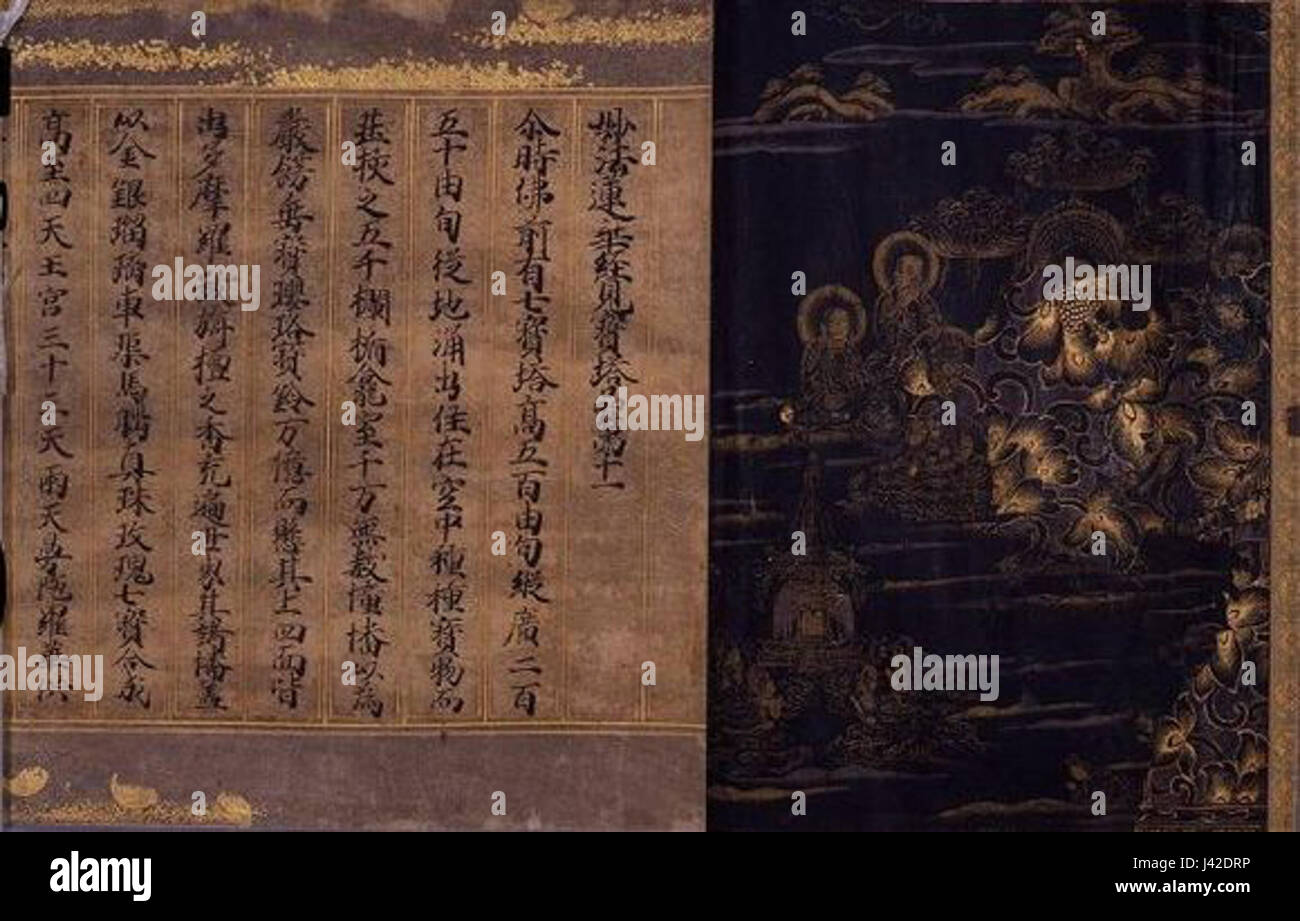 妙法蓮華経見寶塔品第十一
尒時佛前有七寶塔高五百由旬縦廣二百
五十由旬従地涌出住在空中種種寶物而
荘挍之五千欄楯龕室千万無數幢幡以為
嚴餝垂寶瓔珞寳鈴万億而懸其上四面皆
出多摩羅跋栴檀之香充遍世界其諸幡盖
以金銀瑠璃車𤦲馬瑙真珠玫瑰七寶合成
高至四天王宮三十三天雨天曼陀羅華供
alamy
a
alamy stock photo
J42DRP
www.alamy.com